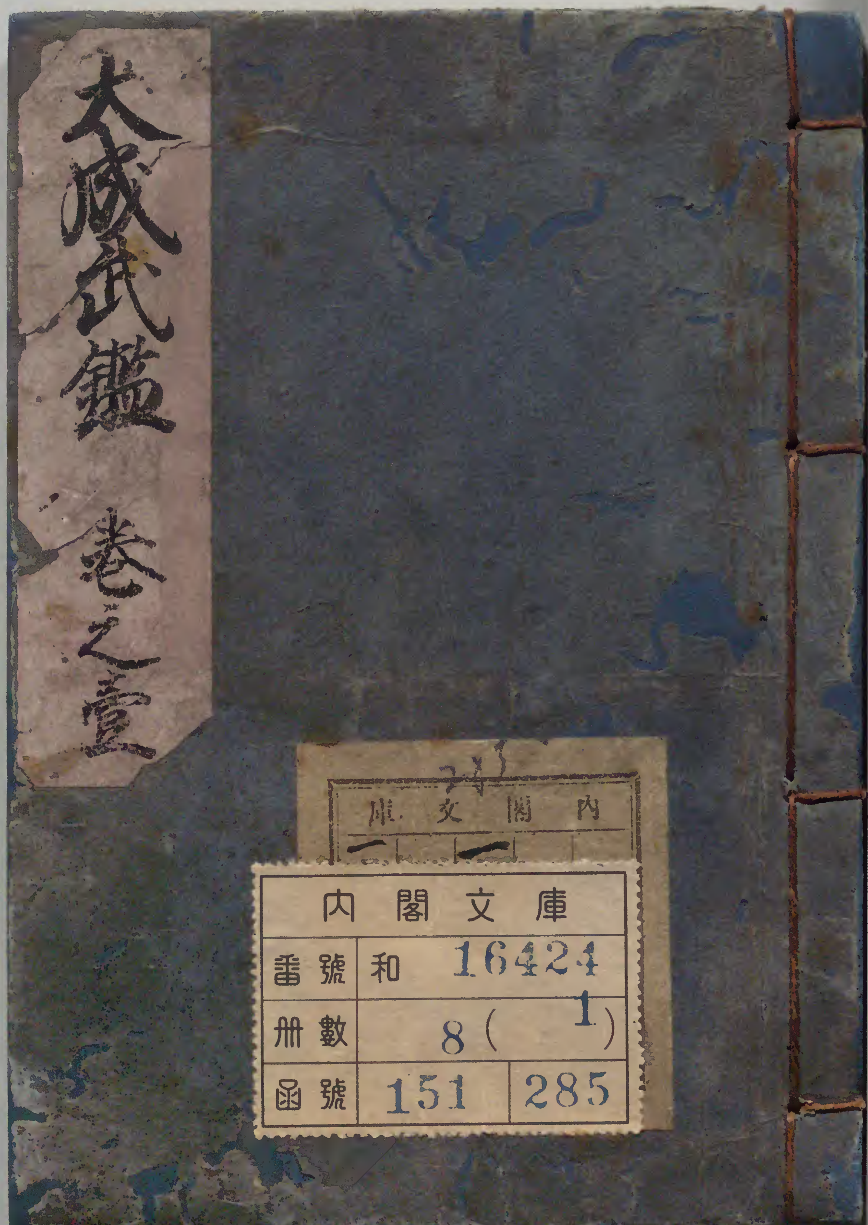 大成武鑑 巻之壹
285
庫文閣内
一 一
内閣文庫
番號 和 16424
冊數 8(1)
函號 151 285